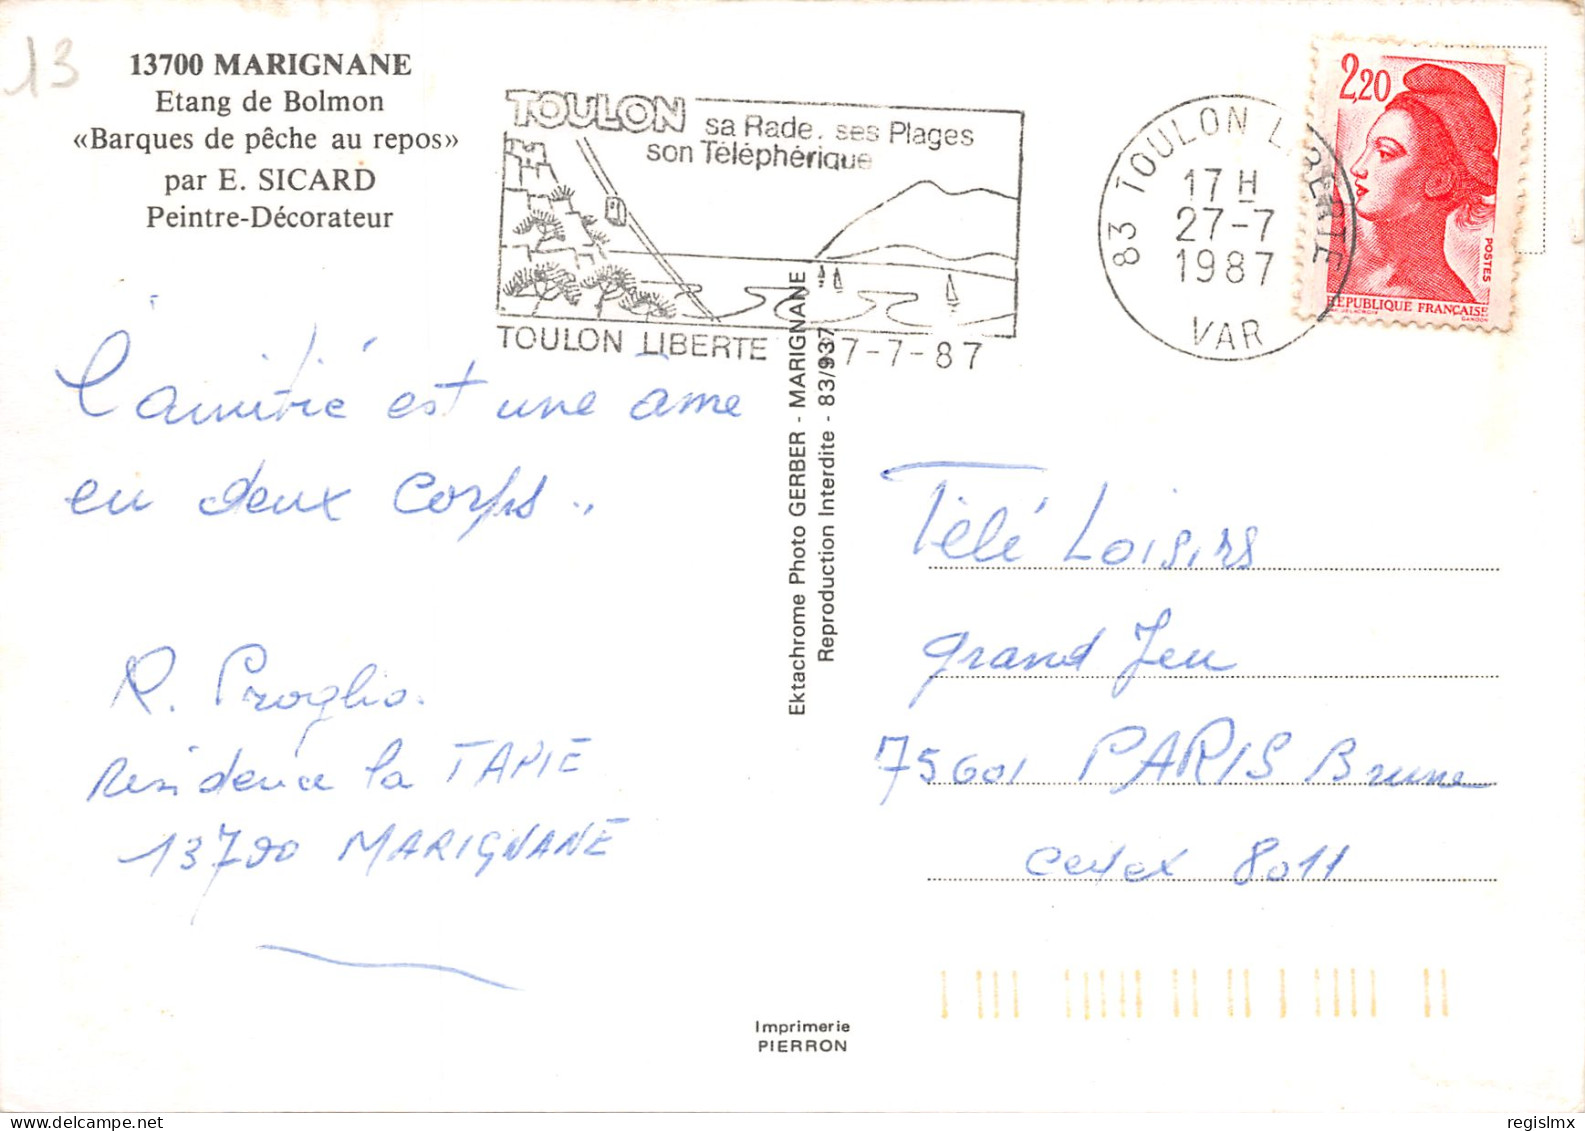 13
13700 MARIGNANE
Etang de Bolmon
«Barques de pêche au repos»
par E. SICARD
Peintre-Décorateur
TOULON
sa Rade. ses Plages
son Téléphérique
TOULON LIBERTE 27-7-87
83 TOULON LIBERTE
17 H
27-7
1987
VAR
2,20
POSTES
REPUBLIQUE FRANÇAISE
L'amitié est une âme
en deux corps..
R. Proglio.
Residence la TAPIE
13700 MARIGNANE
Ektachrome Photo GERBER - MARIGNANE
Reproduction Interdite - 83/937
Télé Loisirs
grand Jeu
75601 PARIS Brune
cedex 8011
Imprimerie
PIERRON
regislmx